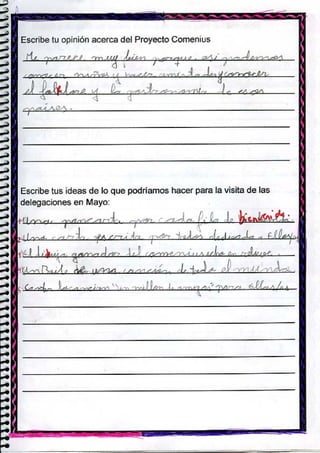 Escribe tu opinión acerca del Proyecto Comenius
Me parece muy bien porque así podemos
conocer niños y hacer amistades y conocer
el folklore y la gastronomía de esos
países.
Escribe tus ideas de lo que podríamos hacer para la visita de las
delegaciones en Mayo:
Una pancarta por cada fila de bienvenida.
Una carta escrita por todos dedicada a Ellos/as
El dibujo ganador del comenius hecho en
Un Baile de una canción de todo el mundo
Cantar la canción "un millon de amigos" para ellos/as